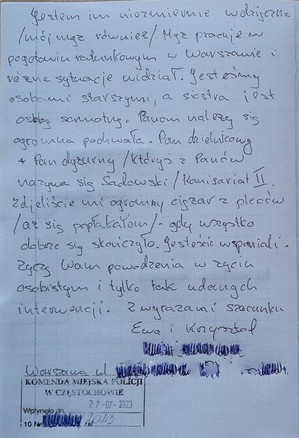 Jestem im niezmiernie wdzięczna
/mój mąż również/ Mąż pracuje w
pogotowiu ratunkowym w Warszawie i
różne sytuacje widział. Jesteśmy
osobami starszymi, a siostra jest
osobą samotną. Panom należy się
ogromna pochwała. Pan dzielnicowy
+ Pan dyżurny /któryś z Panów
nazywa się Sadowski/ Komisariat II
Zdjeliście mi ogromny ciężar z pleców
/aż się popłakałam/ - gdy wszystko
dobrze się skończyło. Jesteście wspaniali.
Życzę Wam powodzenia w życiu
osobistym i tylko tak udanych
interwencji. Z wyrazami szacunku
Ewa i Krzysztof
Warszawa ul.
KOMENDA MIEJSKA POLICJI
W CZĘSTOCHOWIE
Wpłynęło dn. 27-07-2023
10 Nr